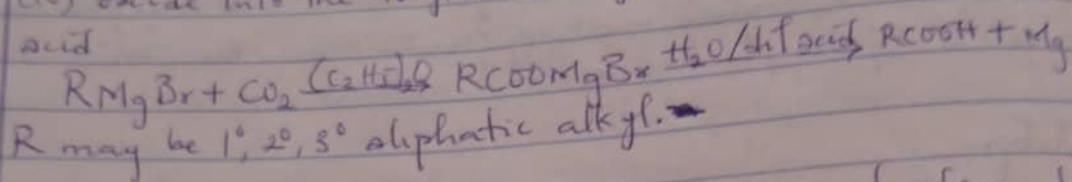 acid
RMgBr + CO2 (C2H5)2O RCOOMgBr H2O/dil acid RCOOH + Mg
R may be 1°, 2°, 3° aliphatic alkyl.